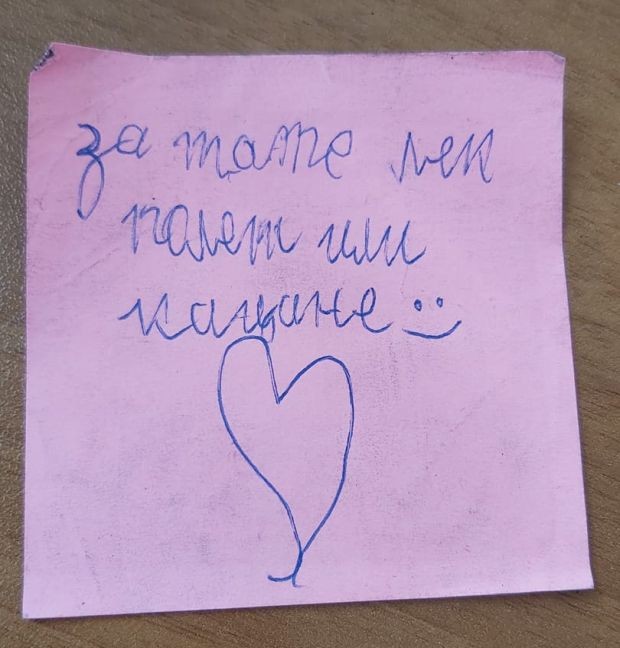 за тате лек
полет или
кацане